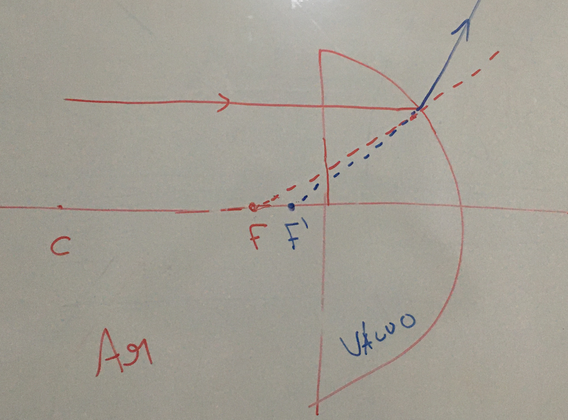 C
F
F'
Ar
VÁCUO